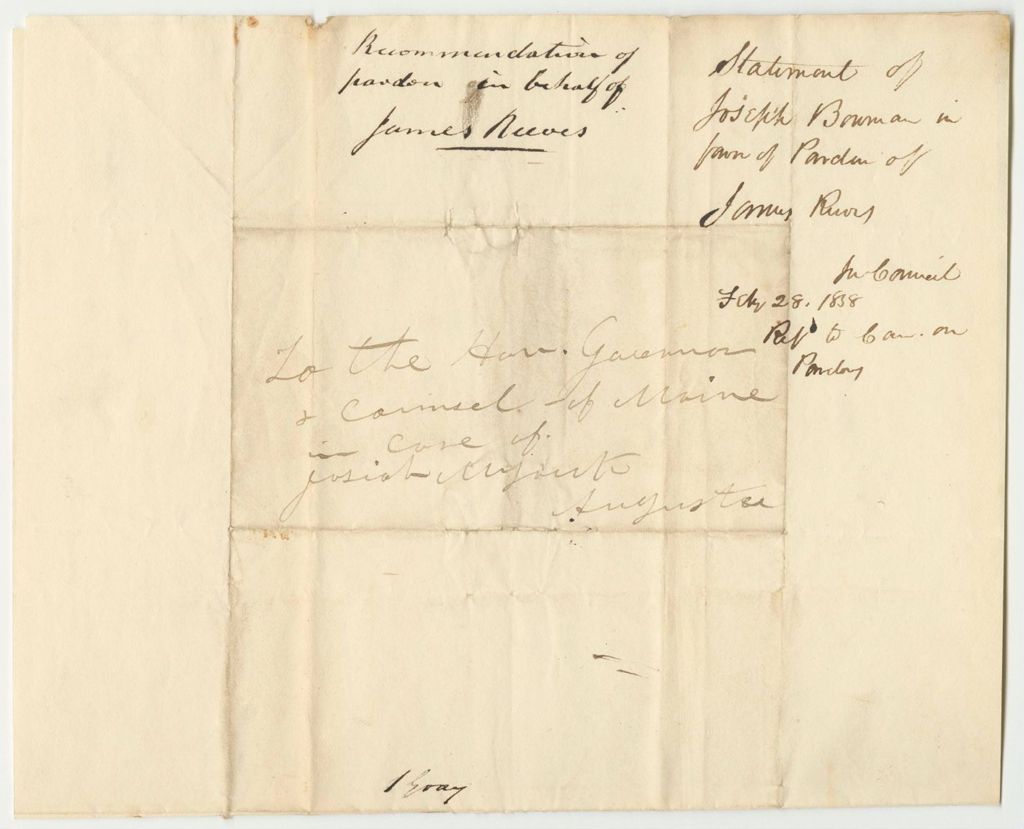 Recommendation of
pardon in behalf of
James Reeves
Statement of
Joseph Bowman in
favor of Pardon of
James Reeves
In Council
Feby 28. 1838
Refd to Com. on
Pardons
To the Hon. Governor
& Counsel of Maine
in care of
Josiah
Augusta